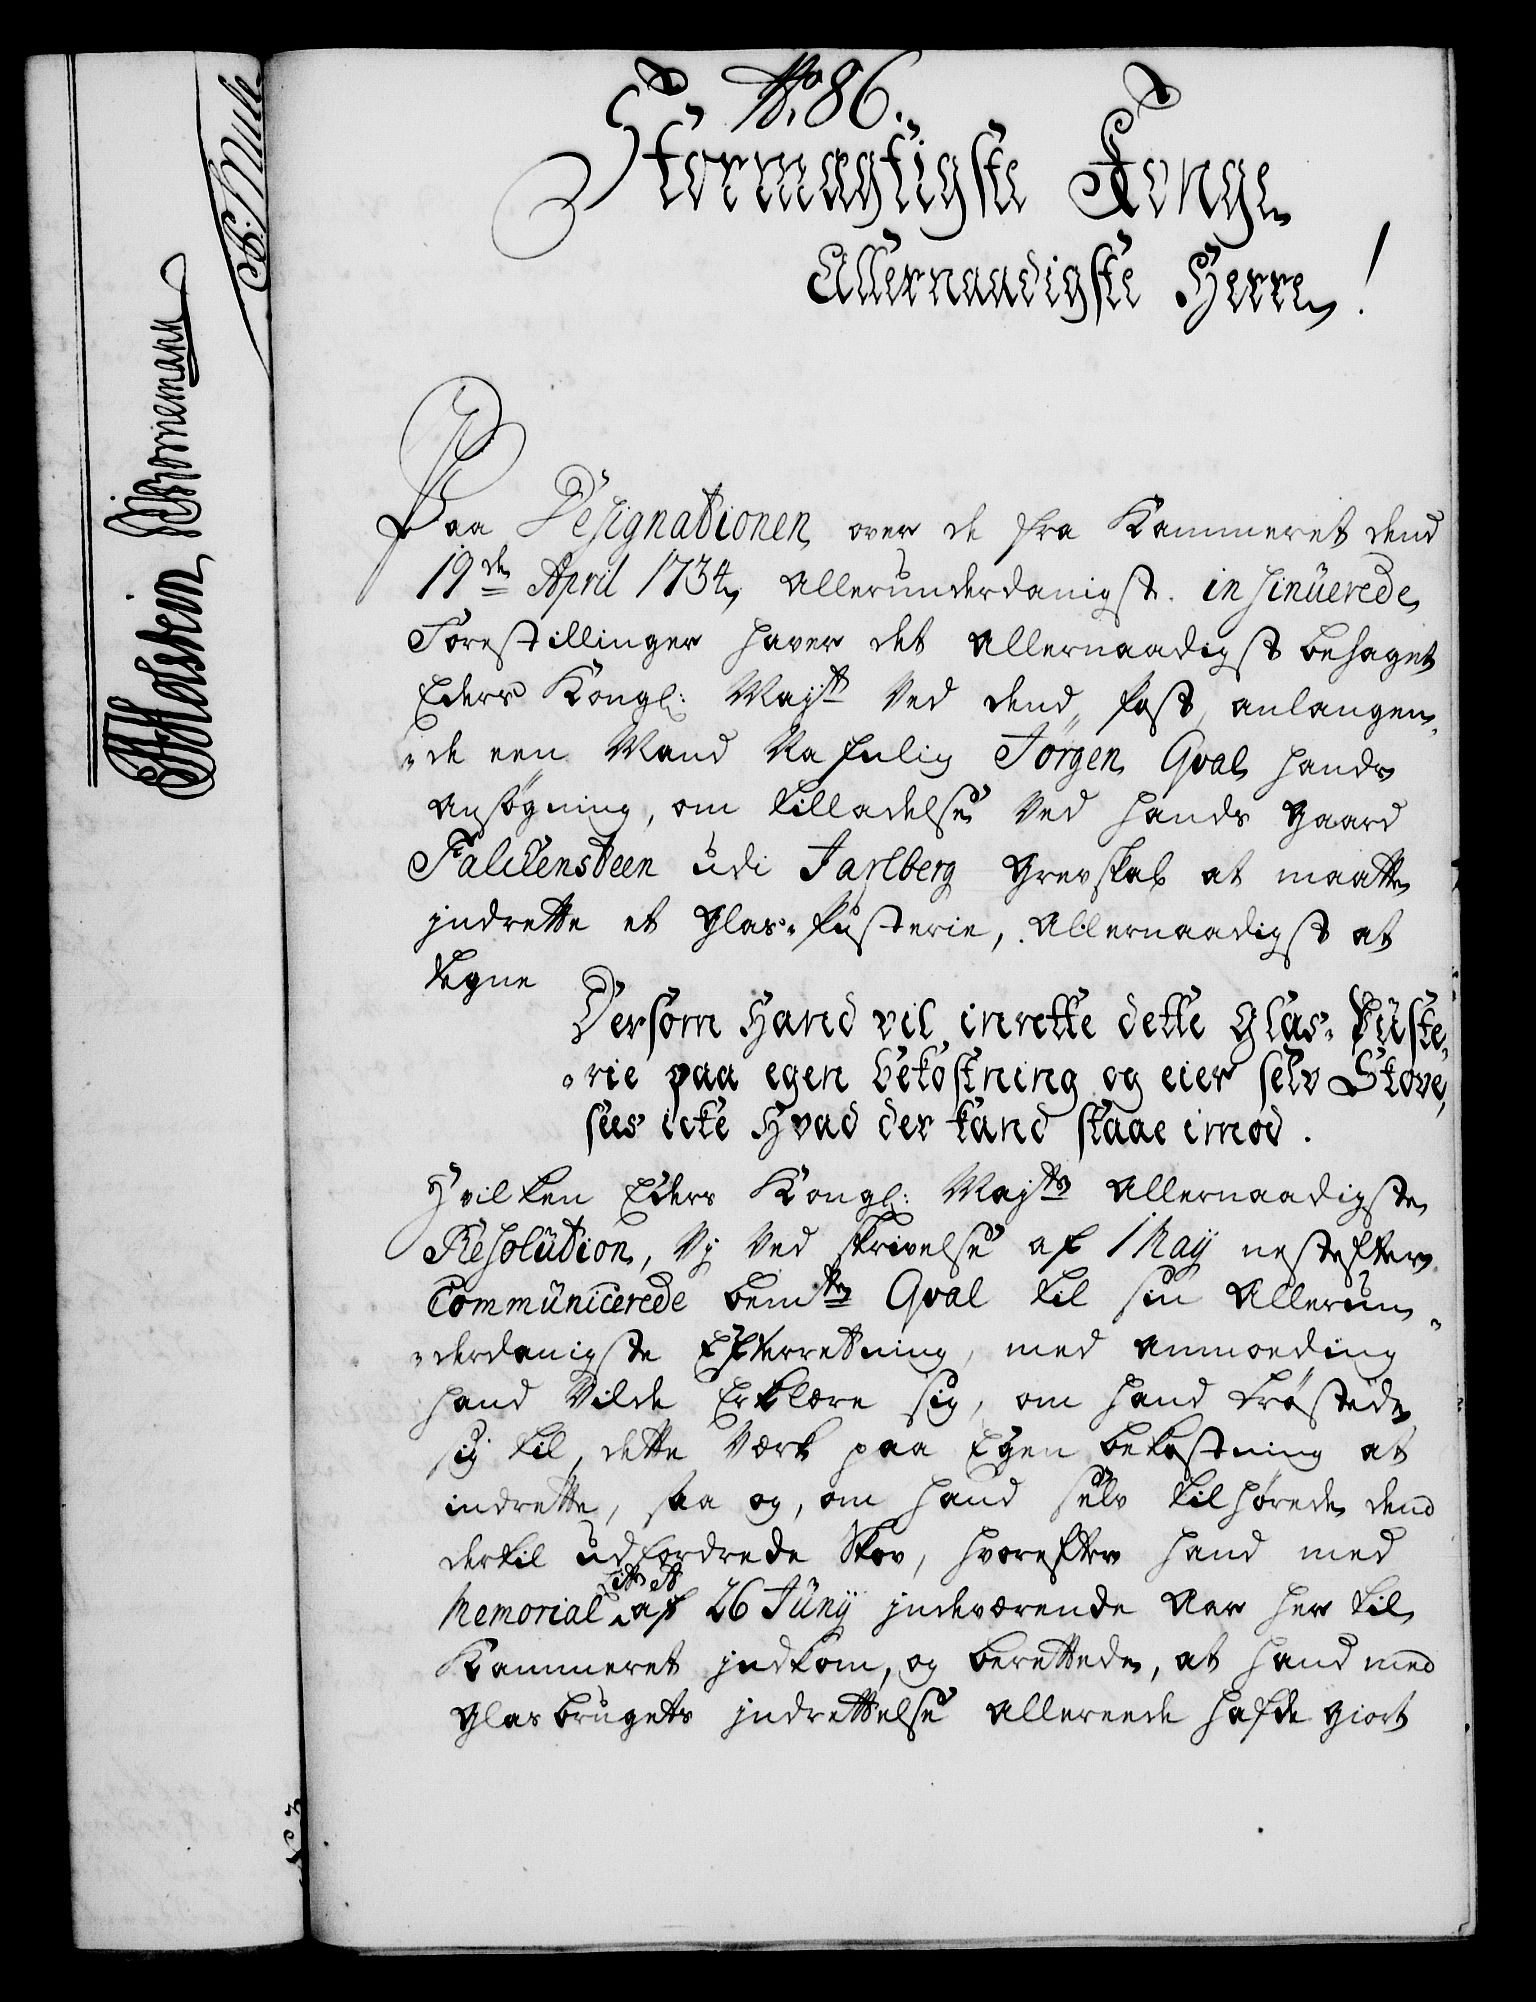 No. 86.
Stormægtigste Konge
Allernaadigste Herre!
Paa Designationen over de fra Kammeret dend
19de April 1734 Allerunderdanigst insinüerede
Forestillinger haver det Allernaadigst behaget
Eders Kongl: Mayst ved dend Post, anlangen-
-de een Mand Nafnlig Jørgen Qval hands
Ansøgning, om tilladelse ved hands gaard
Falckensteen udi Jarlberg Grevskab at maatte
jndrette et Glas-Pusterie, Allernaadigst at
tegne
Dersom Hand vil inrette dette Glas-Püste-
-rie paa egen bekostning og eier selv Skove,
sees icke Hvad der kand staae imod.
Hvilken Eders Kongl: Mayts Allernaadigste
Resolution, Vj ved skrivelse af 1 Maij nestefter
Commünicerede bemte Qval til sin Allerun-
-derdanigste Efterretning, med anmoding
hand vilde Erklære sig, om hand trøstede
sig til, dette Værk paa Egen bekostning at
indrette, saa og, om hand selv tilhørede dend
dertil udfordrede Skov, hvorefter hand med
Memorial Litr A af 26 Jünij jndeværende Aar her til
Kammeret jndkom, og berettede, at hand med
Glasbrugets jndrettelse Allereede hafde giort
JHolstein
Bornemann